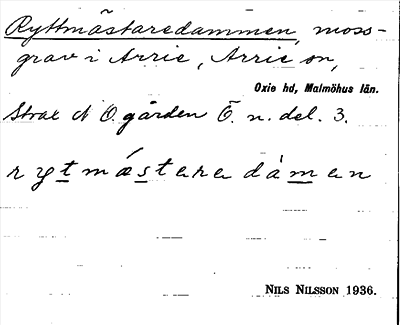 Ryttmästaredammen, moss-
grav i Arrie, Arrie sn,
Oxie hd, Malmöhus län.
Strax N O. gården Ö. n. del. 3.
rytmǽstaredàmen
NILS NILSSON 1936.